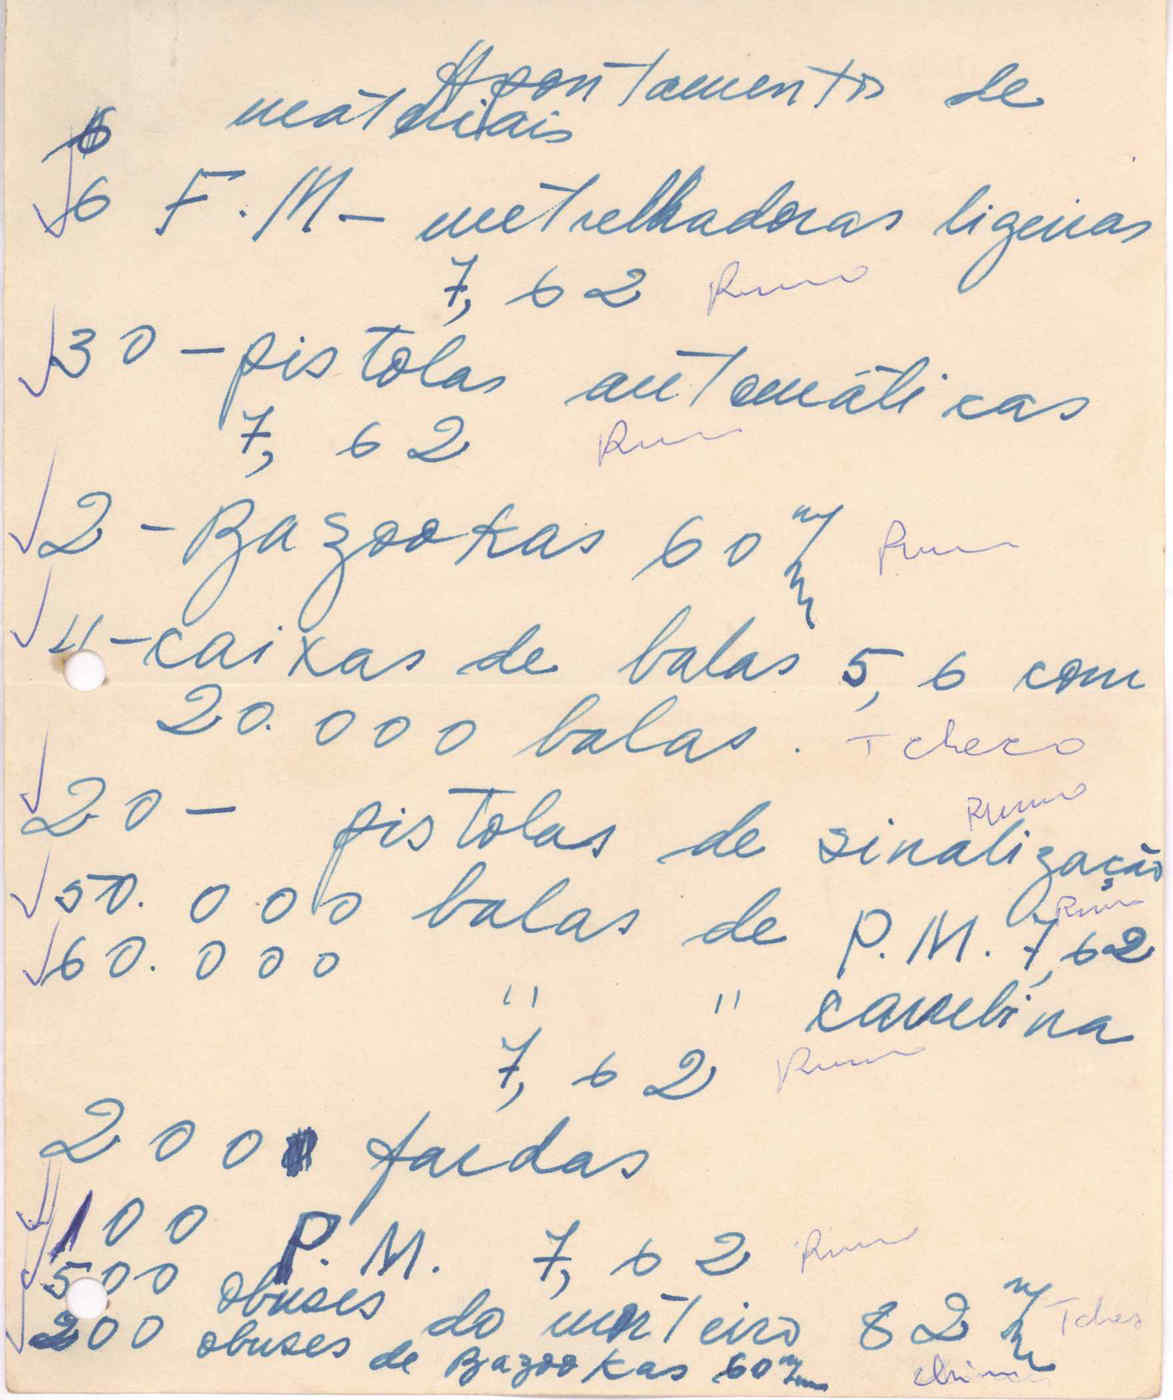 Apontamento de
materiais
6 F.M - metrelhadoras ligeiras
7,62 Russo
30 - pistolas automáticas
7,62 Russo
2 - Bazookas 60 m/m Russo
4 - caixas de balas 5,6 com
20.000 balas. Tcheco
Russo
20 - pistolas de sinalização
50.000 balas de P.M. 7,62 Russo
60.000 " " carabina
7,62 Russo
200 fardas
100 P.M. 7,62 Russo
500 obuses do morteiro 82 m/m Tcheco
200 obuses de Bazookas 60 m/m